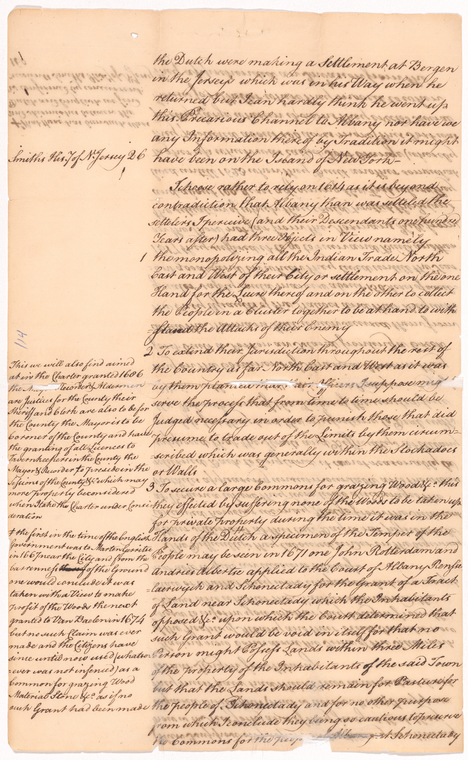 the Dutch were making a Settlement at Bergen
in the Jerseys which was in his Way when he
returned but I can hardly think he went up
this Precarious Channel to Albany nor have we
any Information thereof by Tradition it might
have been on the Island of New York
Smiths His.y of N: Jersey 26
I choose rather to rely on 1614 as it is beyond
contradiction that Albany than was settled, the
settlers I perceive (and their Descendants one hundred
Years after) had three Objects in View namely
1 the monopolizing all the Indian Trade North
East and West of their City or settlement on the one
Hand for the Lucre thereof and on the other to collect
the People in a Cluster together to be at hand to with
stand the Attacks of their Enemy
2 To extend their Jurisdiction throughout the rest of
the Country as far North East and West as it was
by them planed
I suppose
serve the process that from time to time should be
Judged necessary in order to punish those that did
presume to trade out of the Limits by them circum-
scribed which was generally within the Stockadoes
or Walls
3 To secure a large Commons for grazing Wood &c: this
they effected by suffering none of the Woods to be taken up
for private property during the time it was in the
Hands of the Dutch a specimen of the Temper of the
People may be seen in 1671 one John Rotterdam and
applied to the Court of Albany Rensse
laerwyck and Schonectady for the Grant of a Tract
of Land near Schonectady which the Inhabitants
opposed &c: upon which the Court determined that
such Grant would be void in itself for that no
Person might Possess Lands within three Miles
of the property of the Inhabitants of the said Town
but that the Lands should remain for Pasture for
the people of Schonectady and for no other purpose
from which I conclude they being so cautious to preserve
the Commons for the people
at Schonectady
114
This we will also find aimed
at in the Charter granted 1686
the Mayor Recorder & Aldermen
are Justices for the County their
Sheriff and Clerk are also to be for
the County the Mayor is to be
Coroner of the County and have
the granting of all Licences to
Tavernkeepers in the County the
Mayor & Recorder to preside in the
Sessions of the County &c: which may
more properly be considered
when I take the Charter under Consi
deration
the first in the time of the English
Government was to Jan
in 1667 near the City and from the
barrenness of the Ground
one would conclude it was
taken with a View to make
profit of the Woods the next
granted to Van Baelen in 1674
but no such Claim was ever
made and the Citizens have
since until now used (whatso
ever was not infenced) as a
Commons for grazing Wood
Materials Stone &c: as if no
such Grant had been made